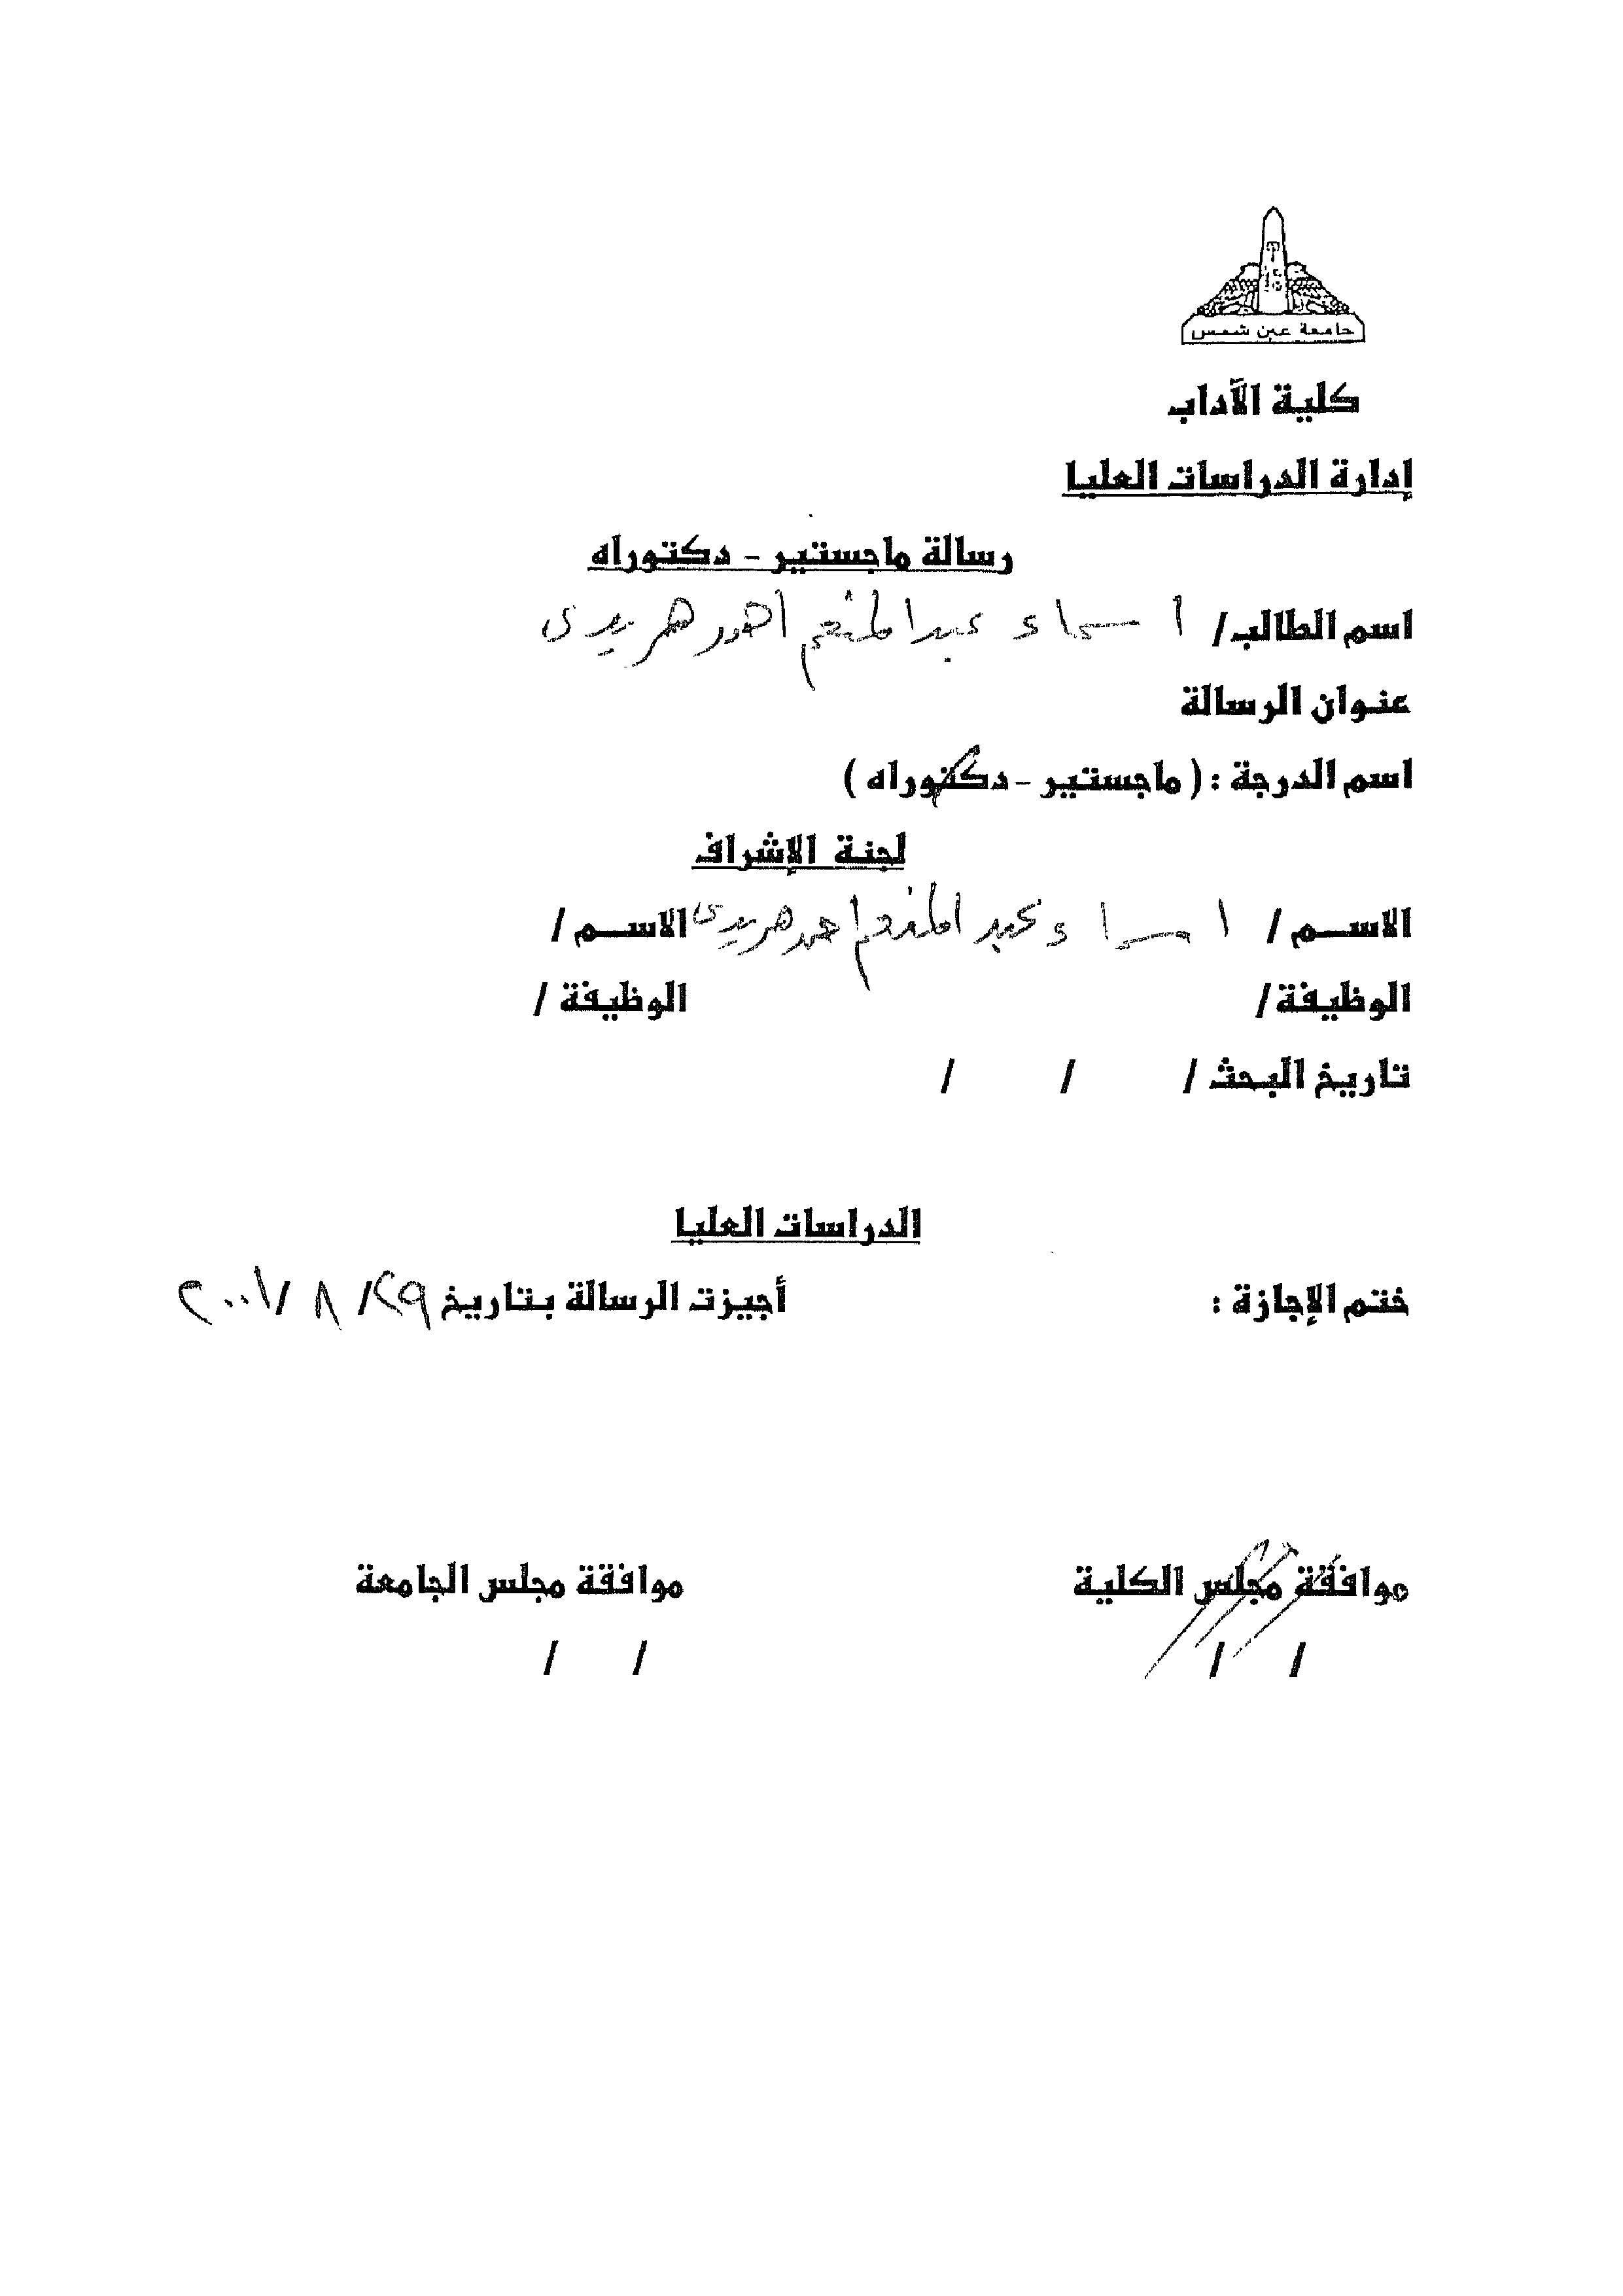 جامعة عين شمس
كلية الآداب
إدارة الدراسات العليا
رسالة ماجستير - دكتوراه
اسم الطالب/ اسماء عبد المنعم احمد هريدى
عنوان الرسالة
اسم الدرجة : ( ماجستير - دكتوراه )
لجنة الإشراف
الاسم / اسماء عبد المنعم احمد هريدى الاسم /
الوظيفة/ الوظيفة /
تاريخ البحث / / /
الدراسات العليا
ختم الإجازة : أجيزت الرسالة بتاريخ ٢٩/ ٨ /٢٠٠١
موافقة مجلس الكلية موافقة مجلس الجامعة
/ / / /